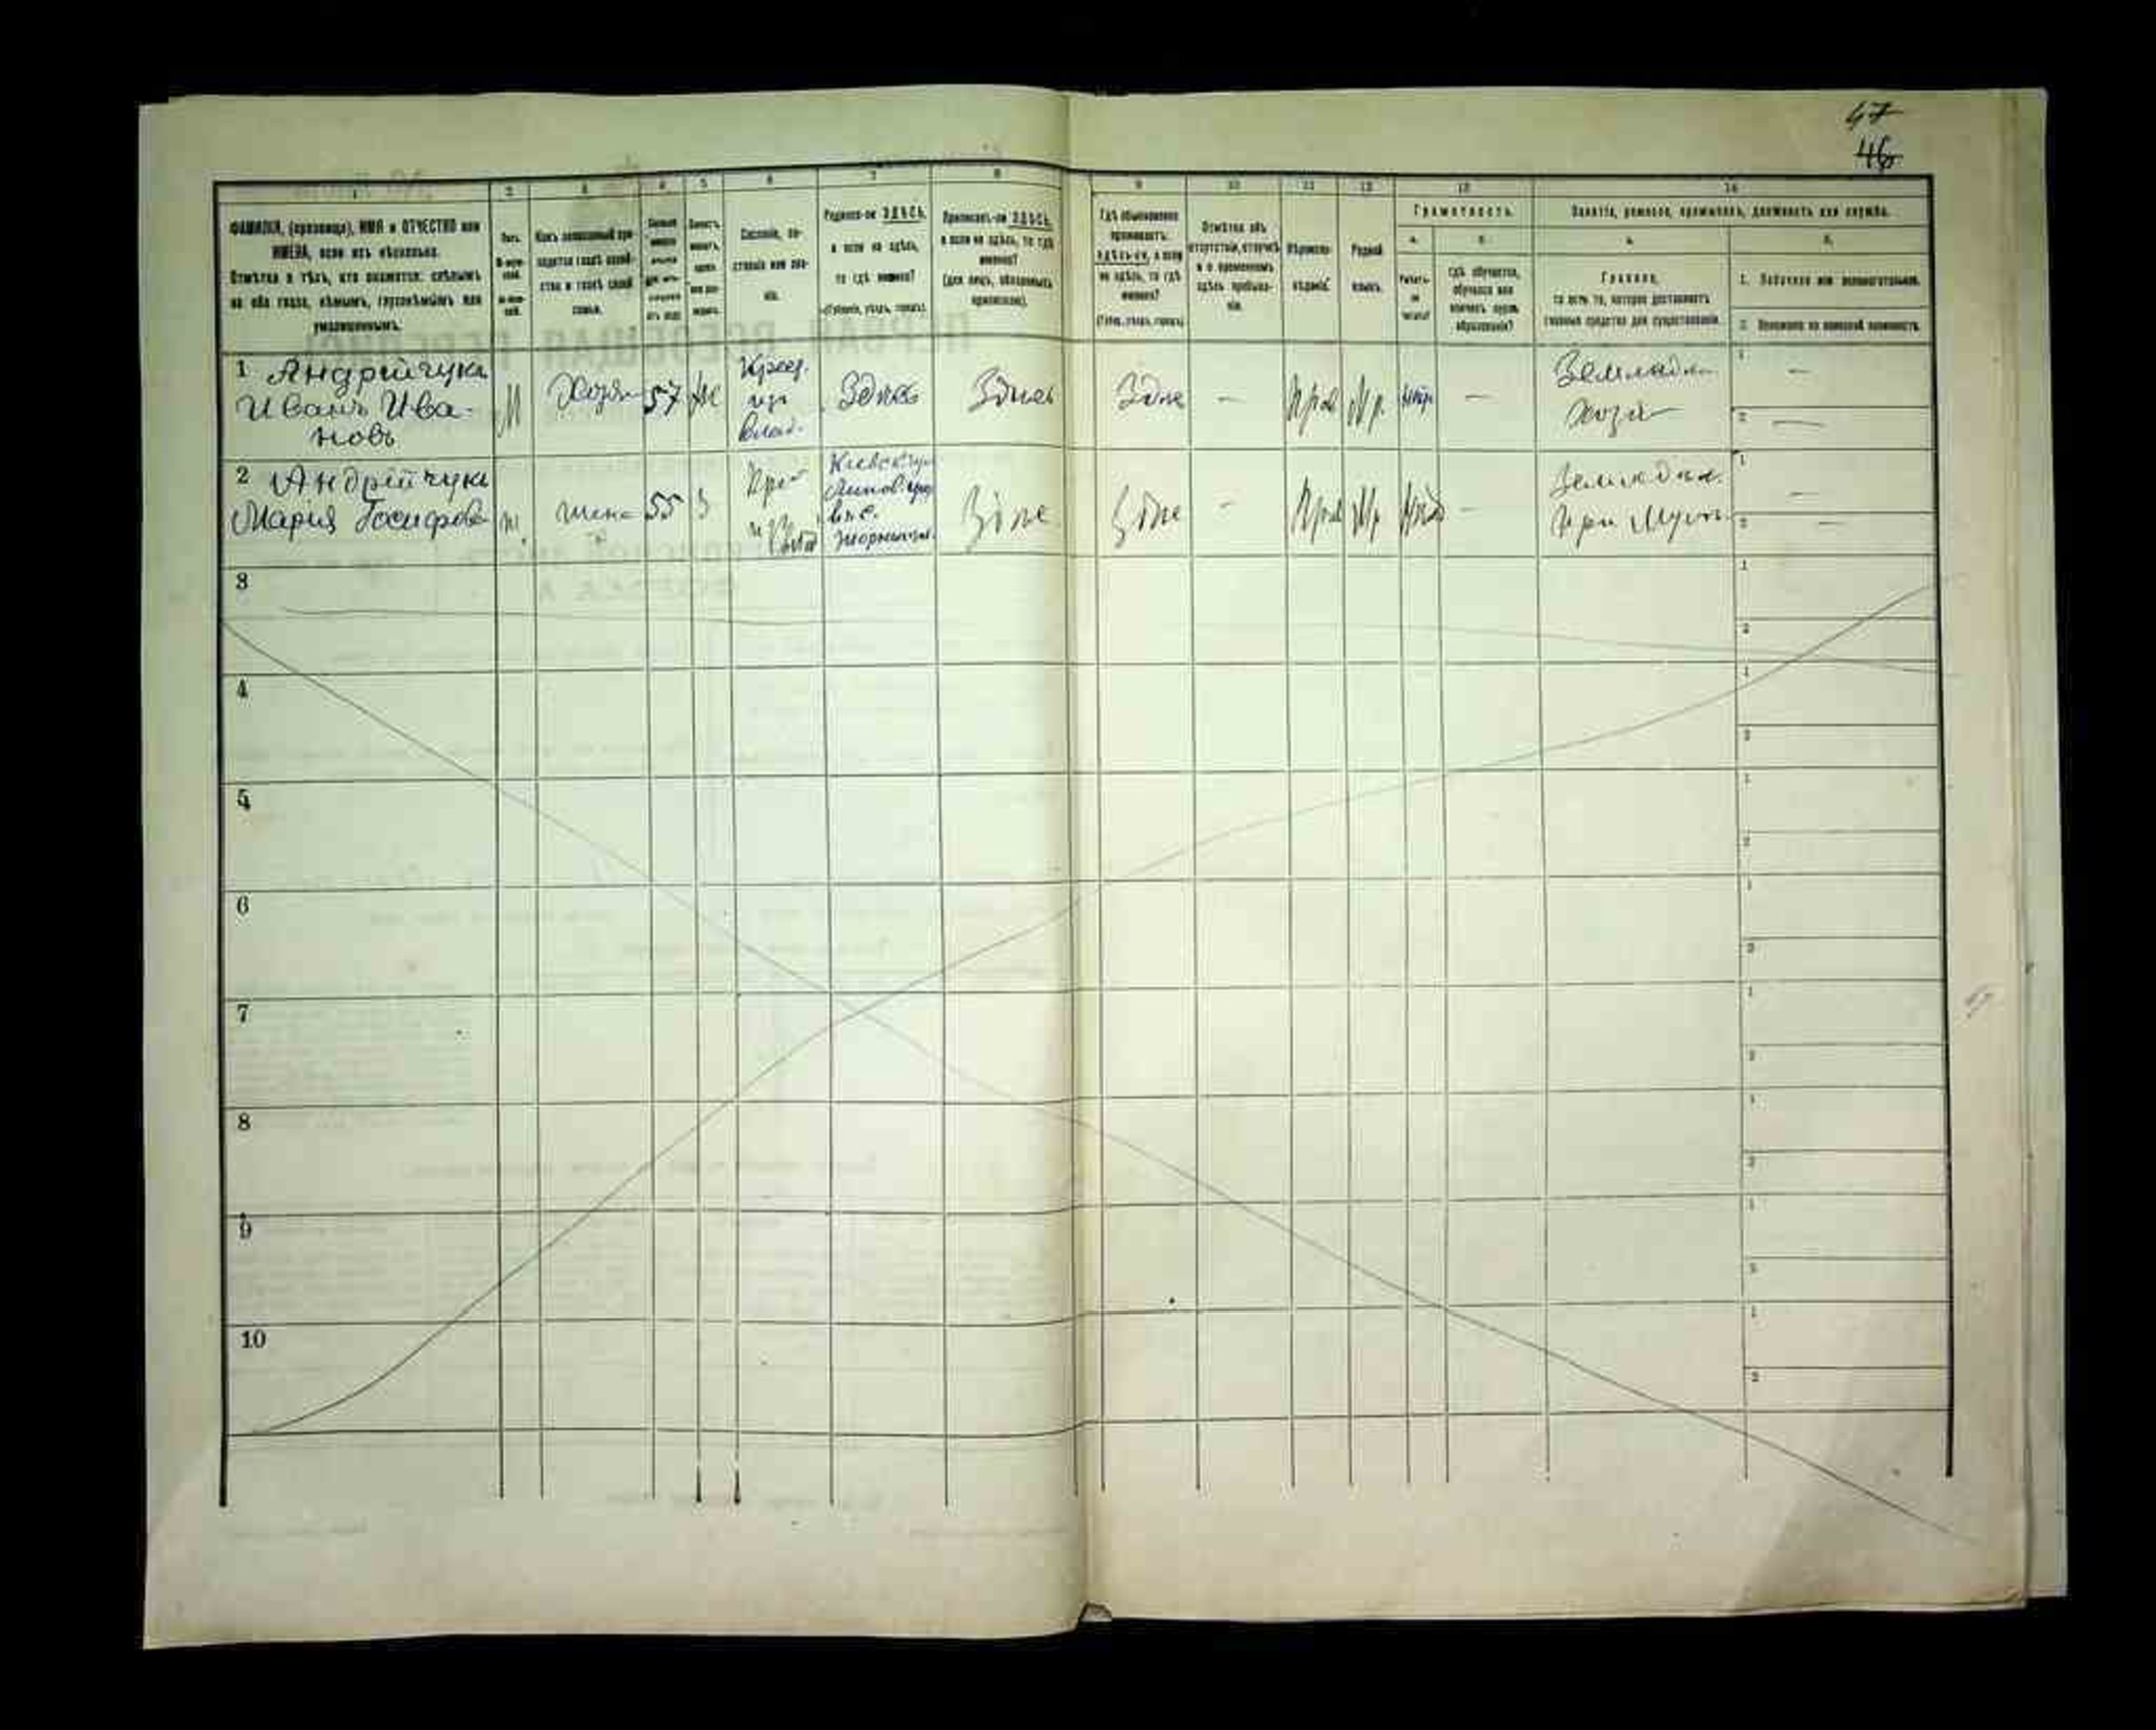 47
46
1 2 3 4 5 6 7 8 9 10 11 12 13 14
ФАМИЛІЯ, (прозвище), ИМЯ и ОТЧЕСТВО или
ИМЕНА, если ихъ нѣсколько.
Отмѣтка о тѣхъ, кто окажется: слѣпымъ
на оба глаза, нѣмымъ, глухонѣмымъ или
умалишеннымъ.
Полъ.
Какъ записанный при-
ходится главѣ хозяй-
ства и главѣ своей
семьи.
Сословіе, со-
стояніе или зва-
ніе.
Родился-ли ЗДѢСЬ,
а если не здѣсь,
то гдѣ именно?
(Губернія, уѣздъ, городъ).
Приписанъ-ли ЗДѢСЬ,
а если не здѣсь, то гдѣ
именно?
(для лицъ, обязанныхъ
припискою).
Гдѣ обыкновенно
проживаетъ:
здѣсь-ли, а если
не здѣсь, то гдѣ
именно?
(Губер., уѣздъ, городъ).
Отмѣтка объ
отсутствіи, отлучкѣ
и о временномъ
здѣсь пребыва-
ніи.
Вѣроиспо-
вѣданіе.
Родной
языкъ.
Грамотность.
а. б.
Умѣетъ-
ли
читать?
Гдѣ обучается,
обучался или
кончилъ курсъ
образованія?
Занятіе, ремесло, промыселъ, должность или служба.
а. б.
Главное,
то есть то, которое доставляетъ
главныя средства для существованія.
1. Побочное или вспомогательное.
2. Положеніе по воинской повинности.
1 Андрейчукъ
Иванъ Ива-
новъ
М Хозя 57 Крест.
изъ
влад.
Здѣсь Здѣсь Здѣ — Прав Мр. —
Земледѣл
хозя
1 —
2 —
2 Андрейчукъ
Мария Іосифова
ж. жена 55 З Кре
Киевск гу
Липов. уѣз
Здѣсе Здѣсе - Прав Мр -
Земледѣл.
при Мужѣ
1 —
2 —
3
1
2
4
1
2
5
1
2
6
1
2
7
1
2
8
1
2
9
1
2
10
1
2